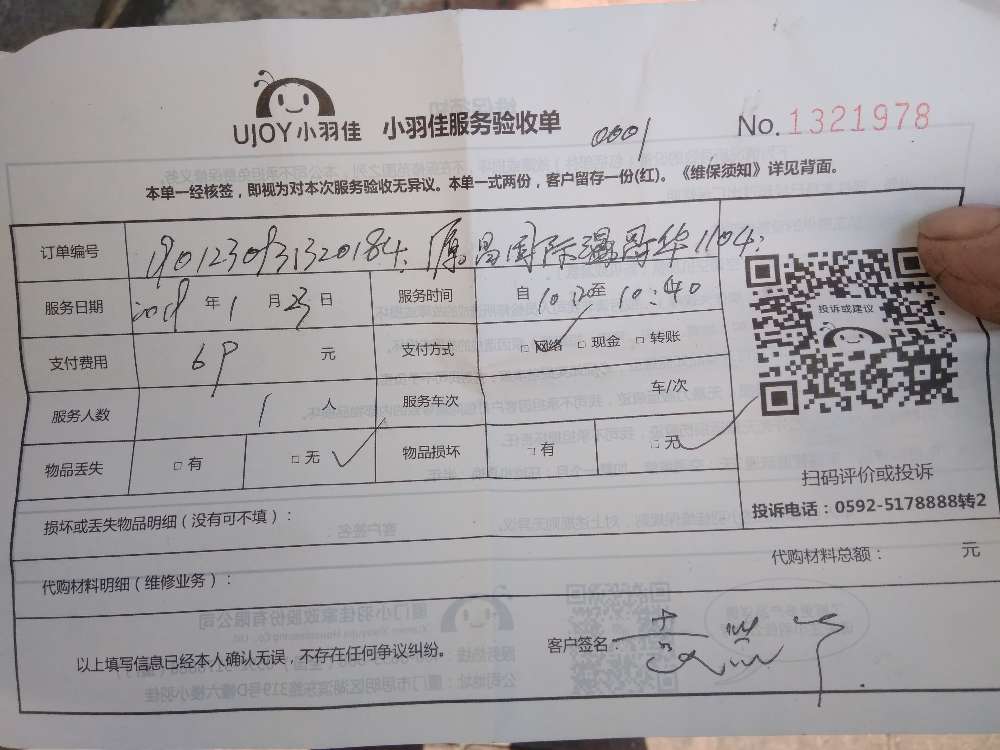 UJOY小羽佳 小羽佳服务验收单 0001 No.1321978
本单一经核签，即视为对本次服务验收无异议。本单一式两份，客户留存一份(红)。《维保须知》详见背面。
订单编号 国际 1104
服务日期 年1月23日 服务时间 自10:20至10:40
投诉或建议
支付费用 69 元 支付方式 □网络 □现金 □转账
服务人数 1 人 服务车次 车/次
物品丢失 □有 □无 ✓ 物品损坏 □有 □无 ✓
扫码评价或投诉
投诉电话：0592-5178888转2
损坏或丢失物品明细（没有可不填）：
代购材料总额： 元
代购材料明细（维修业务）：
客户签名：
以上填写信息已经本人确认无误，不存在任何争议纠纷。